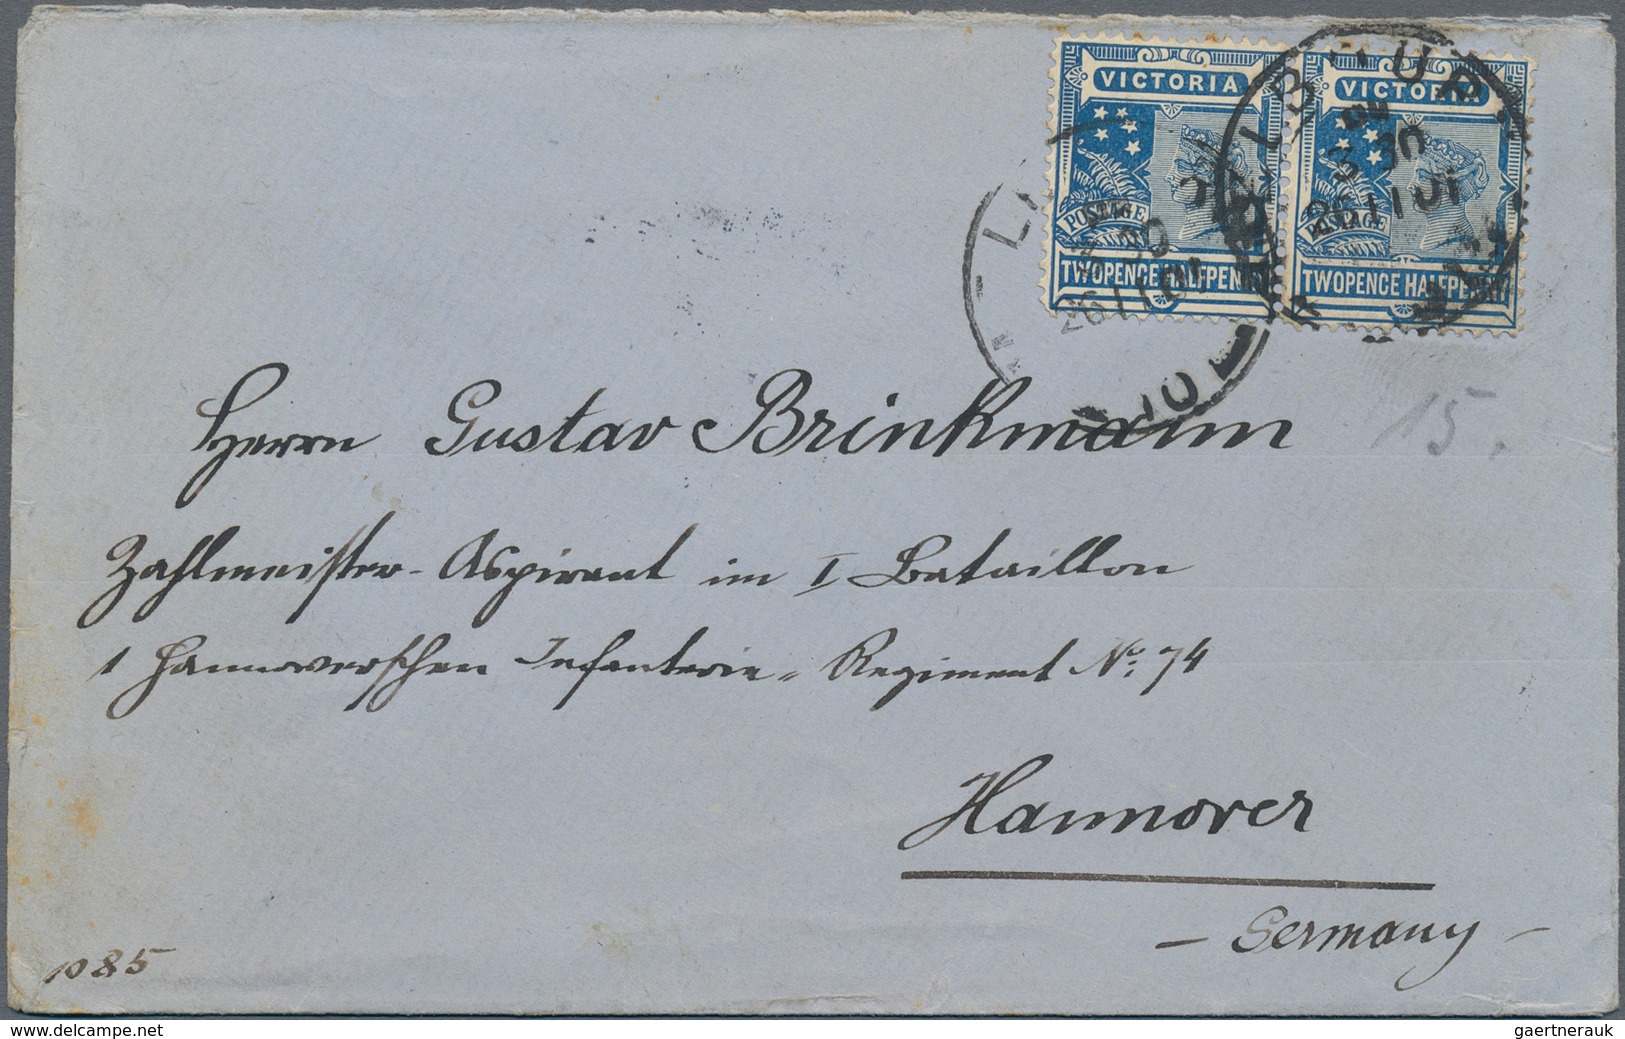 VICTORIA
POSTAGE
TWOPENCE HALFPENNY
VICTORIA
POSTAGE
TWOPENCE HALFPENNY
3 30
26 11 01
3 30
26 11 01
Herrn Gustav Brinkmann
15.
Zahlmeister-Aspirant im I Bataillon
1 Hannoverschen Infanterie-Regiment No: 74
Hannover
- Germany -
1085
www.delcampe.net
gaertnerauk